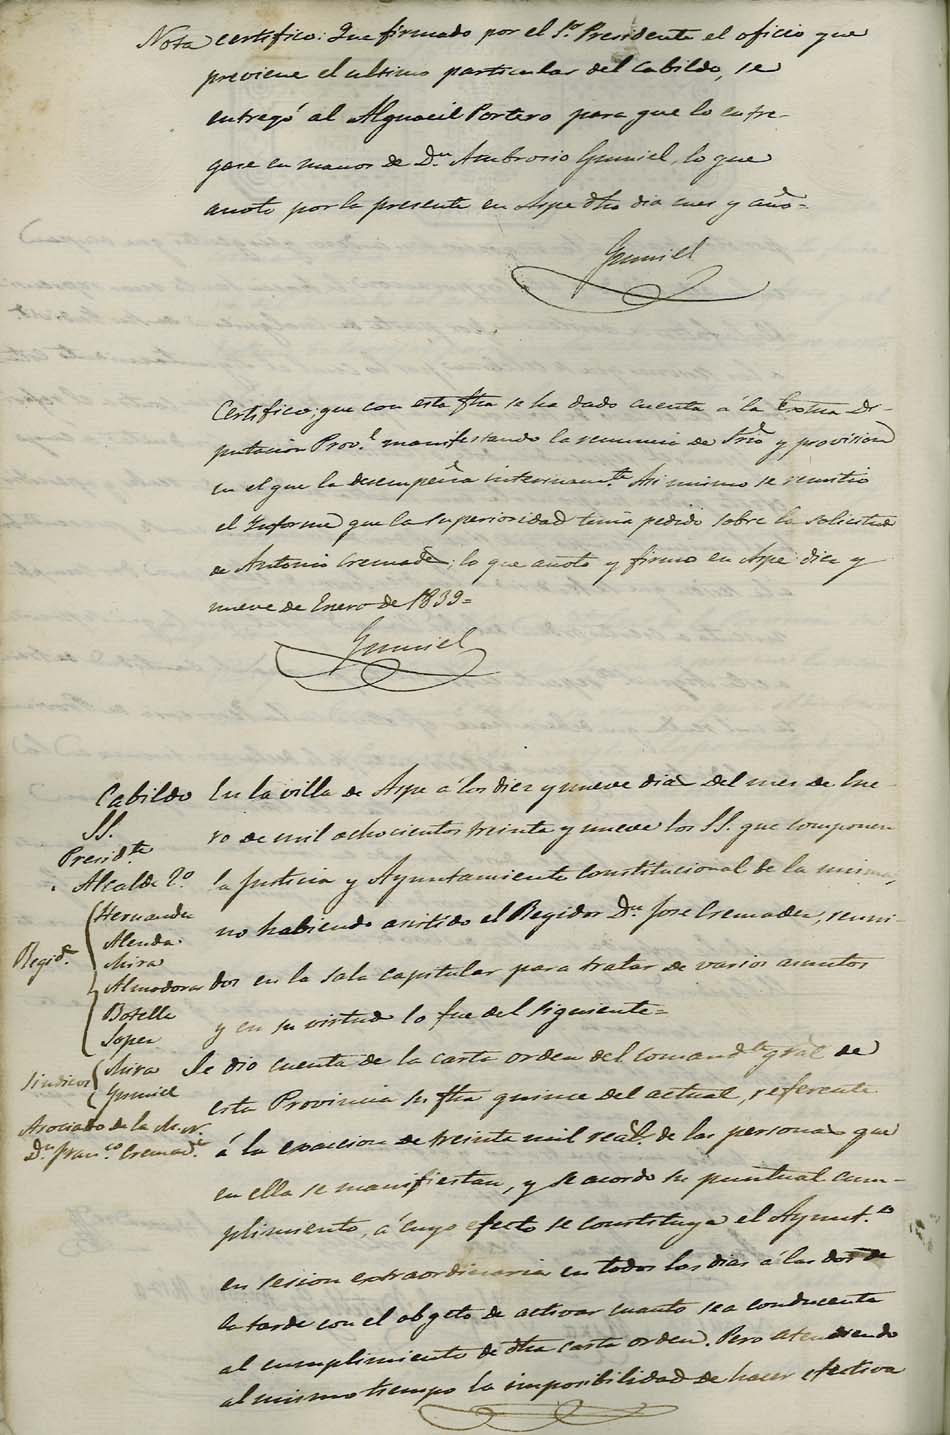 Nota certifico: Que firmado por el S.or Presidente el oficio que
previene el ultimo particular del Cabildo, se
entregó al Alguacil Portero para que lo entre-
gase en manos de D.n Ambrosio Gumiel, lo que
anoto por la presente en Aspe dho dia mes y año=
Gumiel
Certifico: que con esta fha se ha dado cuenta a la Exma Di-
putacion Prov.l manifestando la renuncia de Srio y provision
en el que la desempeña interinam.te Asi mismo se remitio
el Informe que la Superioridad tenia pedido sobre la solicitud
de Antonio Cremades; lo que anoto y firmo en Aspe diez y
nueve de Enero de 1839=
Gumiel
Cabildo
SS.
Presid.te
Alcalde 2.o
Regid.s
Hernandez
Alenda
Mira
Almodovar
Botella
Soper
Sindicos
Mira
Gumiel
Asociado de la M. N.
D.n Fran.co Cremad.s
En la villa de Aspe á los diez y nueve dias del mes de Ene-
ro de mil ochocientos treinta y nueve los SS. que componen
la Justicia y Ayuntamiento Constitucional de la misma,
no habiendo asistido el Regidor D.n Jose Cremades, reuni-
dos en la sala capitular para tratar de varios asuntos
y en su virtud lo fue del siguiente=
Se dio cuenta de la carta orden del Comand.te gral de
esta Provincia su fha quince del actual, referente
á la exaccion de treinta mil real.s de las personas que
en ella se manifiestan, y se acordo su puntual cum-
plimiento, á cuyo efecto se constituya el Ayunt.o
en sesion extraordinaria en todos los dias á las dos de
la tarde con el obgeto de activar cuanto sea conducente
al cumplimiento de dha carta orden. Pero atendiendo
al mismo tiempo la imposibilidad de hacer efectiva